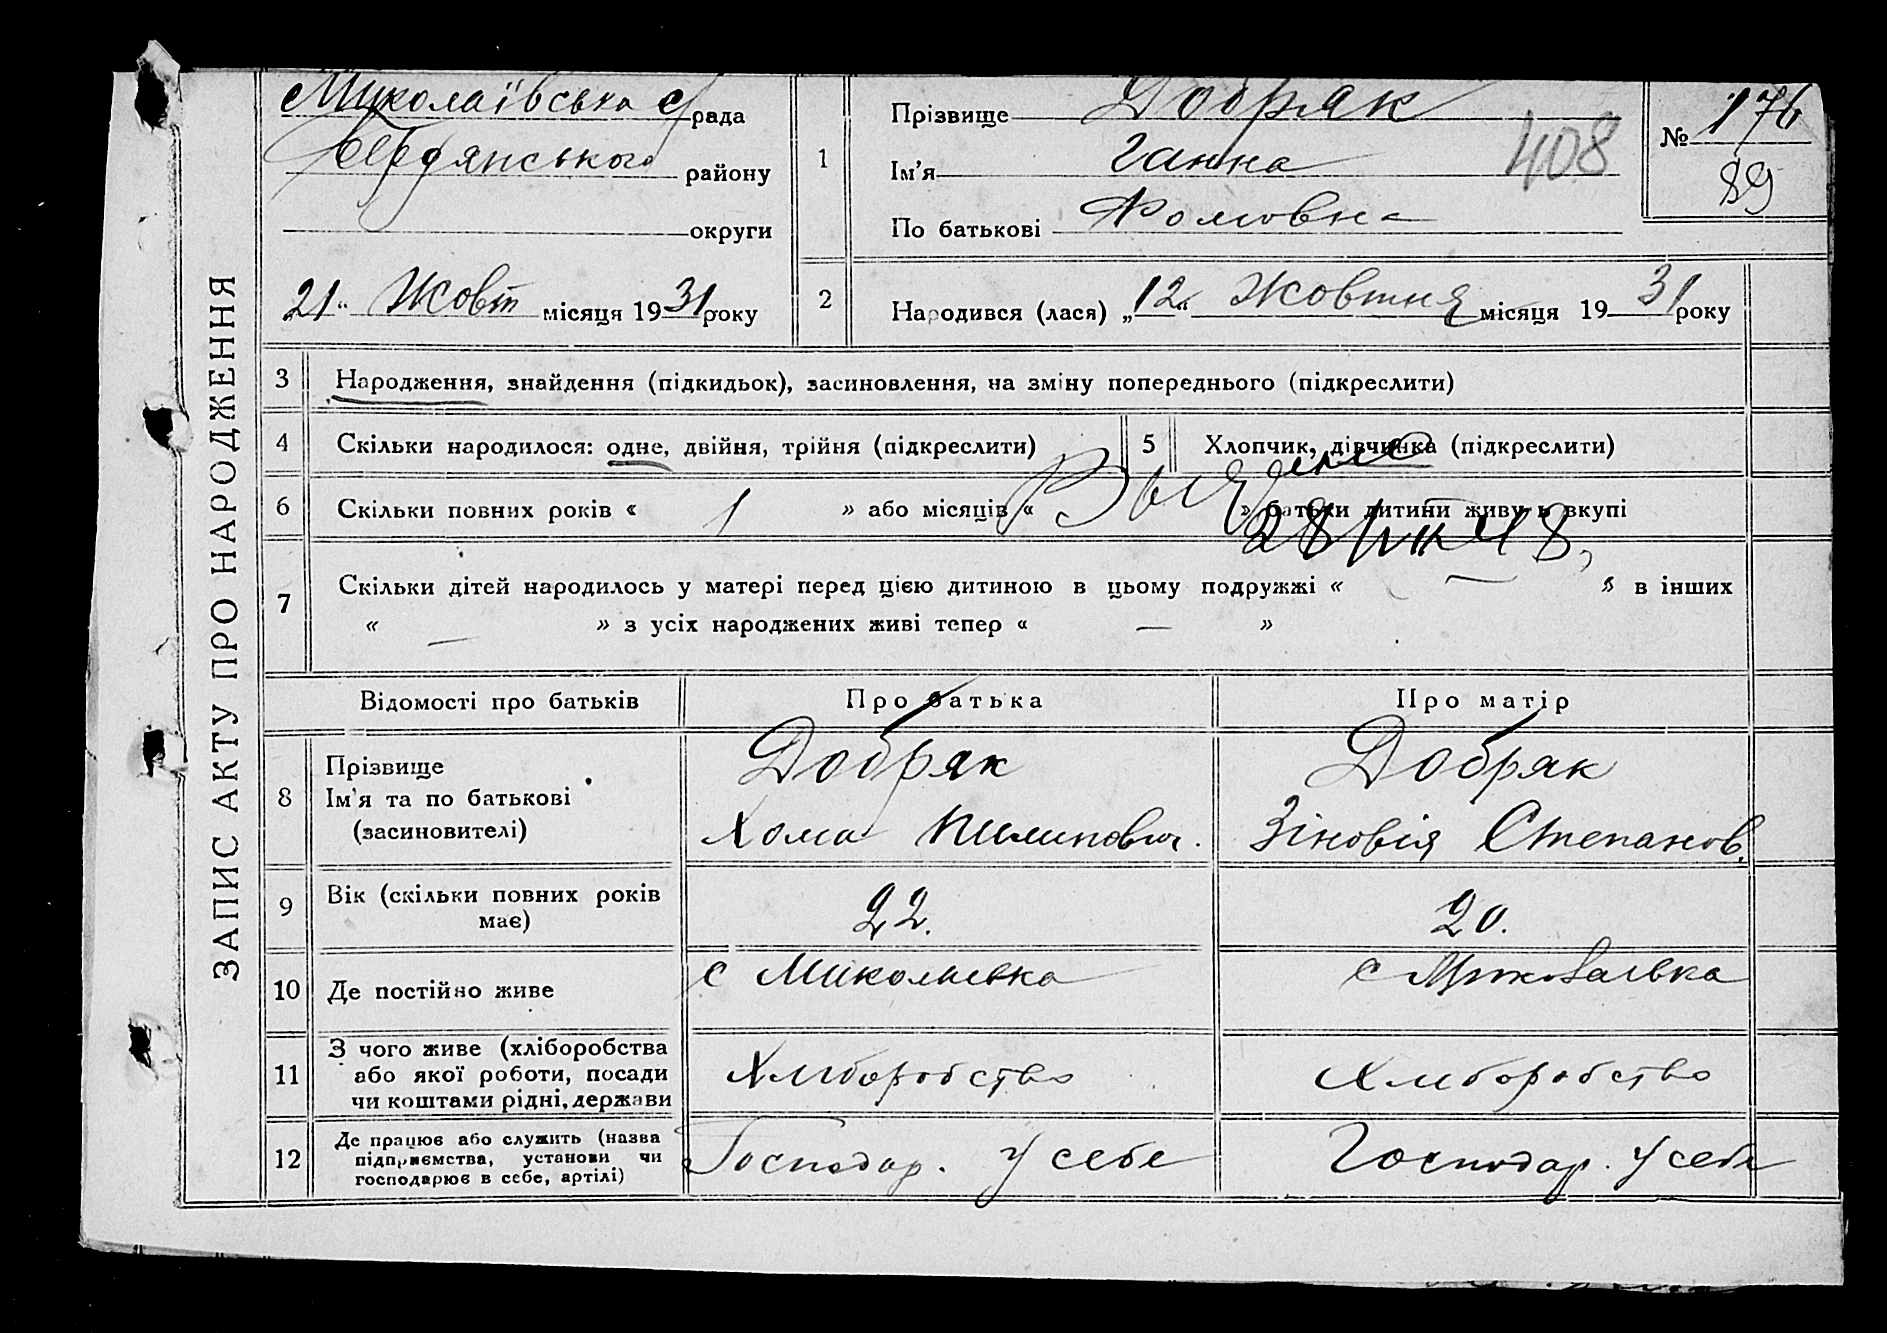 ЗАПИС АКТУ ПРО НАРОДЖЕННЯ
Миколаївська с/рада
Бердянського району
округи
21" Жовт місяця 1931 року
1
Прізвище Добряк
Ім'я Ганна
По батькові Фомовна
408
№ 176
89
2
Народився (лася) „12" Жовтня місяця 1931 року
3 Народження, знайдення (підкидьок), засиновлення, на зміну попереднього (підкреслити)
4 Скільки народилося: одне, двійня, трійня (підкреслити)
5 Хлопчик, дівчинка (підкреслити)
6 Скільки повних років « 1 » або місяців « » батьки дитини живуть вкупі
28
48
7 Скільки дітей народилось у матері перед цією дитиною в цьому подружжі « — » в інших
« — » з усіх народжених живі тепер « — »
Відомості про батьків Про батька Про матір
8 Прізвище Ім'я та по батькові (засиновителі)
Добряк
Хома Пилипович.
Добряк
Зіновія Степанов.
9 Вік (скільки повних років має) 22. 20.
10 Де постійно живе с Миколаевка с Миколаевка
11 З чого живе (хліборобства або якої роботи, посади чи коштами рідні, держави
Хліборобство Хліборобство
12 Де працює або служить (назва підприємства, установи чи господарює в себе, артілі)
Господар. у себе Господар. у себе